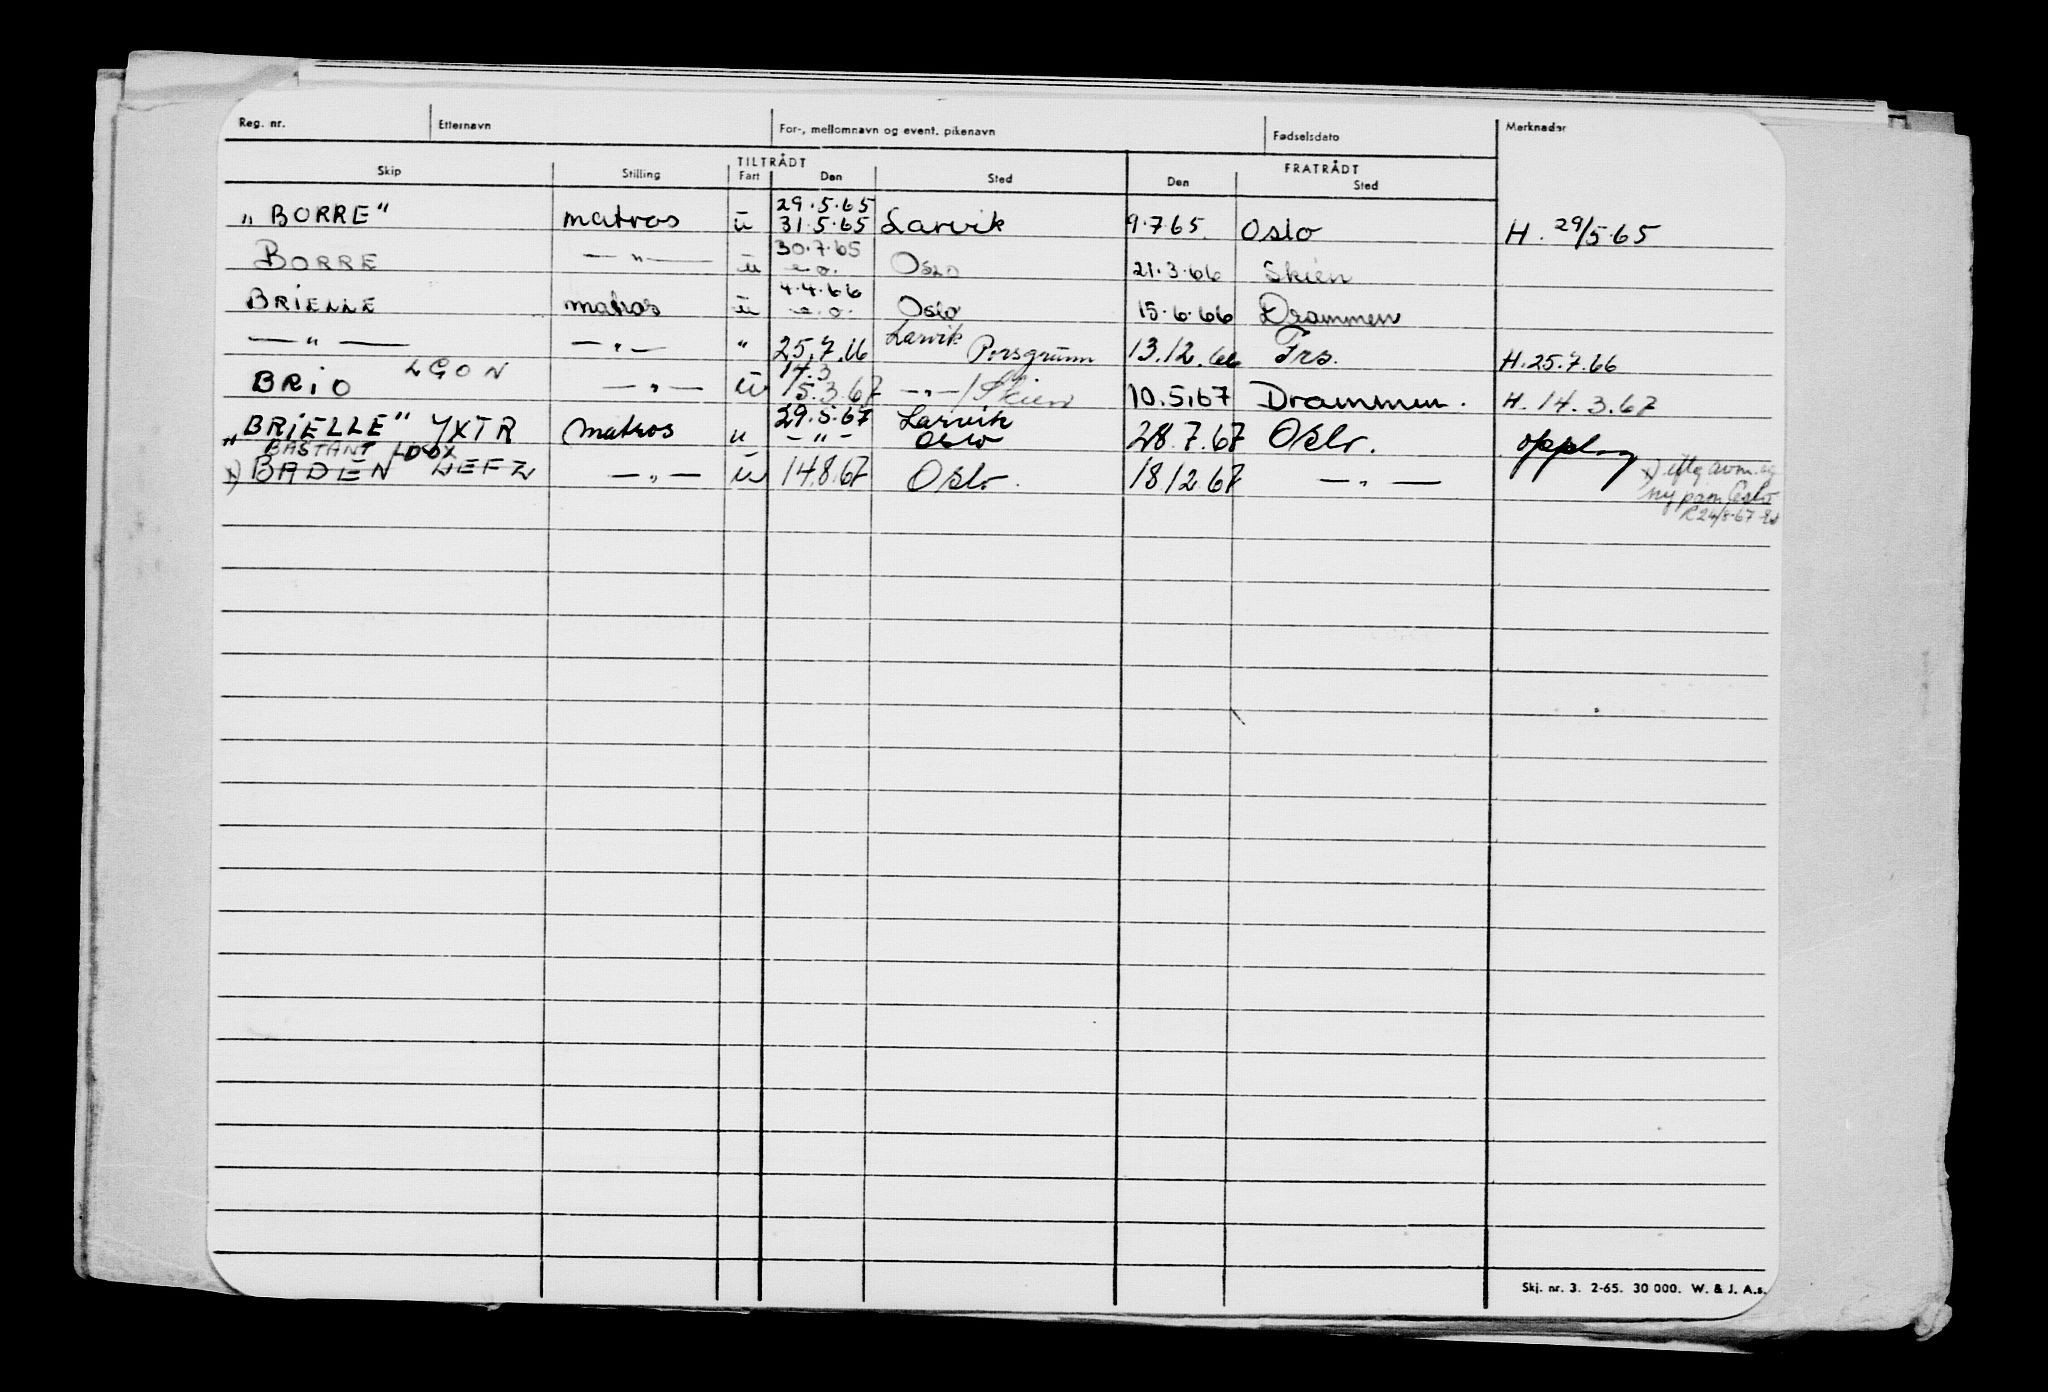 Reg. nr. Etternavn For-, mellomnavn og event. pikenavn Fødselsdato Merknader
TILTRÅDT FRATRÅDT
Skip Stilling Fart Den Sted Den Sted
29.5.65
„BORRE" matros ü 31.5.65 Larvik 9.7.65. Oslo H. 29/5.65
30.7.65
BORRE — " — ü e.o. Oslo 21.3.66 Skien
4.4.66
BRIELLE matros ü e.o. Oslo 15.6.66 Drammen
— " — — " — " 25.7.66 Larvik Porsgrunn 13.12.66 Frs. H. 25.7.66
14.3
BRIO LGON — " — ü 15.3.67 — " — / Skien 10.5.67 Drammen. H. 14.3.67
29.5.67 Larvik
„BRIELLE" YXTR matros u — " — Oslo 28.7.67 Oslo. opplag
BASTANT LDOX
x) BADEN LEFZ — " — ü 14.8.67 Oslo. 18.12.67 — " — x) iflg avm. og
ny Oslo
24/8-67
Skj. nr. 3. 2-65. 30 000. W. & J. A.s.